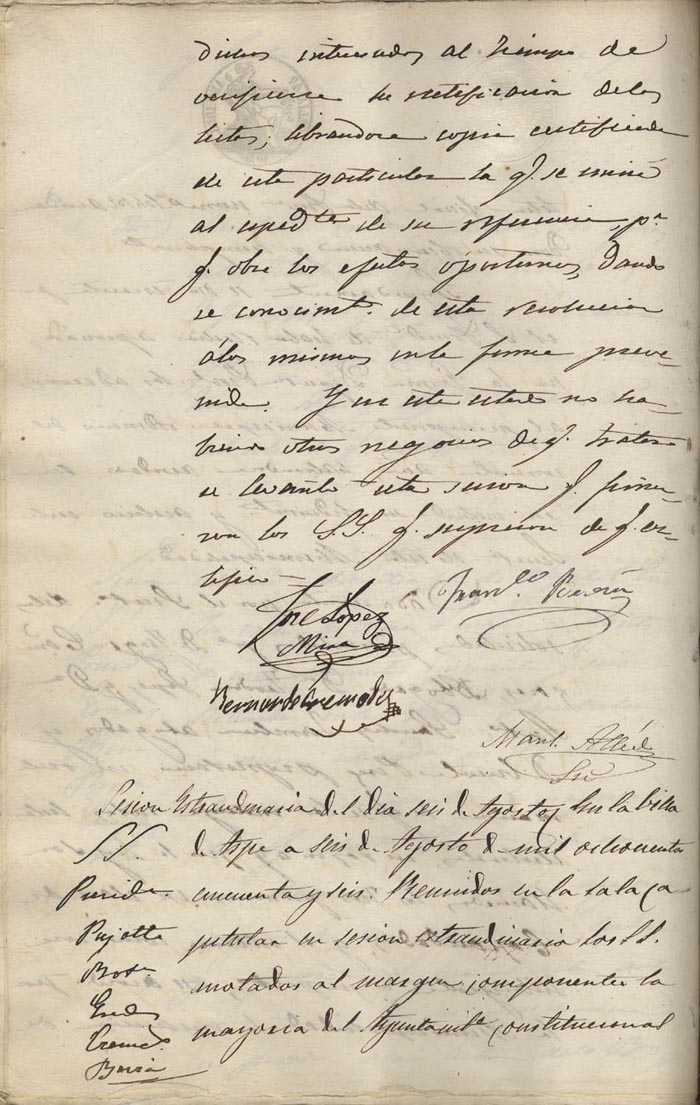 dichos interesados al tiempo de
verificarse la rectificacion de las
listas; librandose copia certificada
de este particular la q.e se unirá
al exped.te de su referencia, p.a
q.e obre los efectos oportunos, dando
se conocim.to de esta resolucion
á los mismos en la forma preve-
nida. Y en este estado no ha-
biendo otros negocios de q.e tratar
se levantó esta sesion q.e firma-
ron los S.S. q.e supieron de q.e cer-
tifico =
Jose Lopez
Mira
Fran.co
Bernardo Cremades
Man.l
Srio
Sesion estraordinaria del dia seis de Agosto
En la villa
de Aspe a seis de Agosto de mil ochocientos
cincuenta y seis: Reunidos en la sala ca
pitular en sesion estraordinaria los SS.
notados al margen componentes la
mayoria del Ayuntami.to Constitucional
SS.
Presid.te
Pujalte
Bot.a
Cremad.s